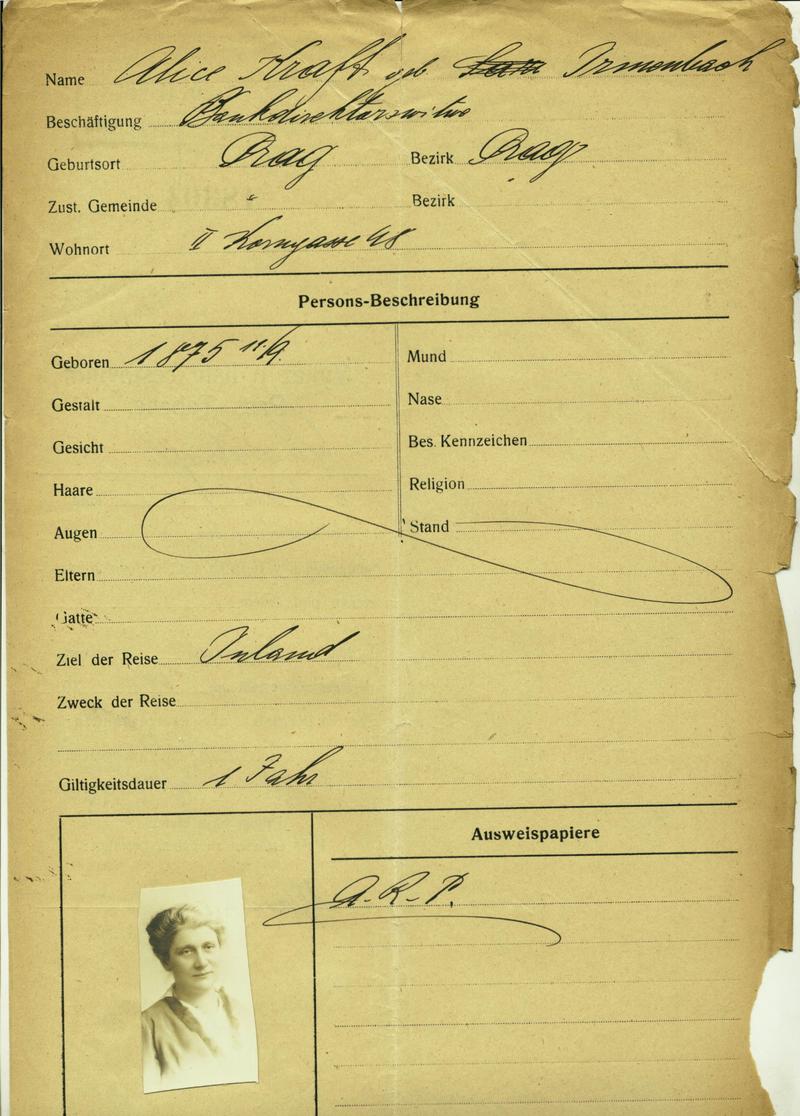 Name Alice Kraft geb Irmenbach
Beschäftigung Bankdirektorswitwe
Geburtsort Prag Bezirk Prag
Zust. Gemeinde " Bezirk "
Wohnort II Korngasse 48
Persons-Beschreibung
Geboren 1875 11/9. Mund
Gestalt Nase
Gesicht Bes. Kennzeichen
Haare Religion
Augen Stand
Eltern
Gatte
Ziel der Reise Inland
Zweck der Reise
Giltigkeitsdauer 1 Jahr
Ausweispapiere
A. R. P.